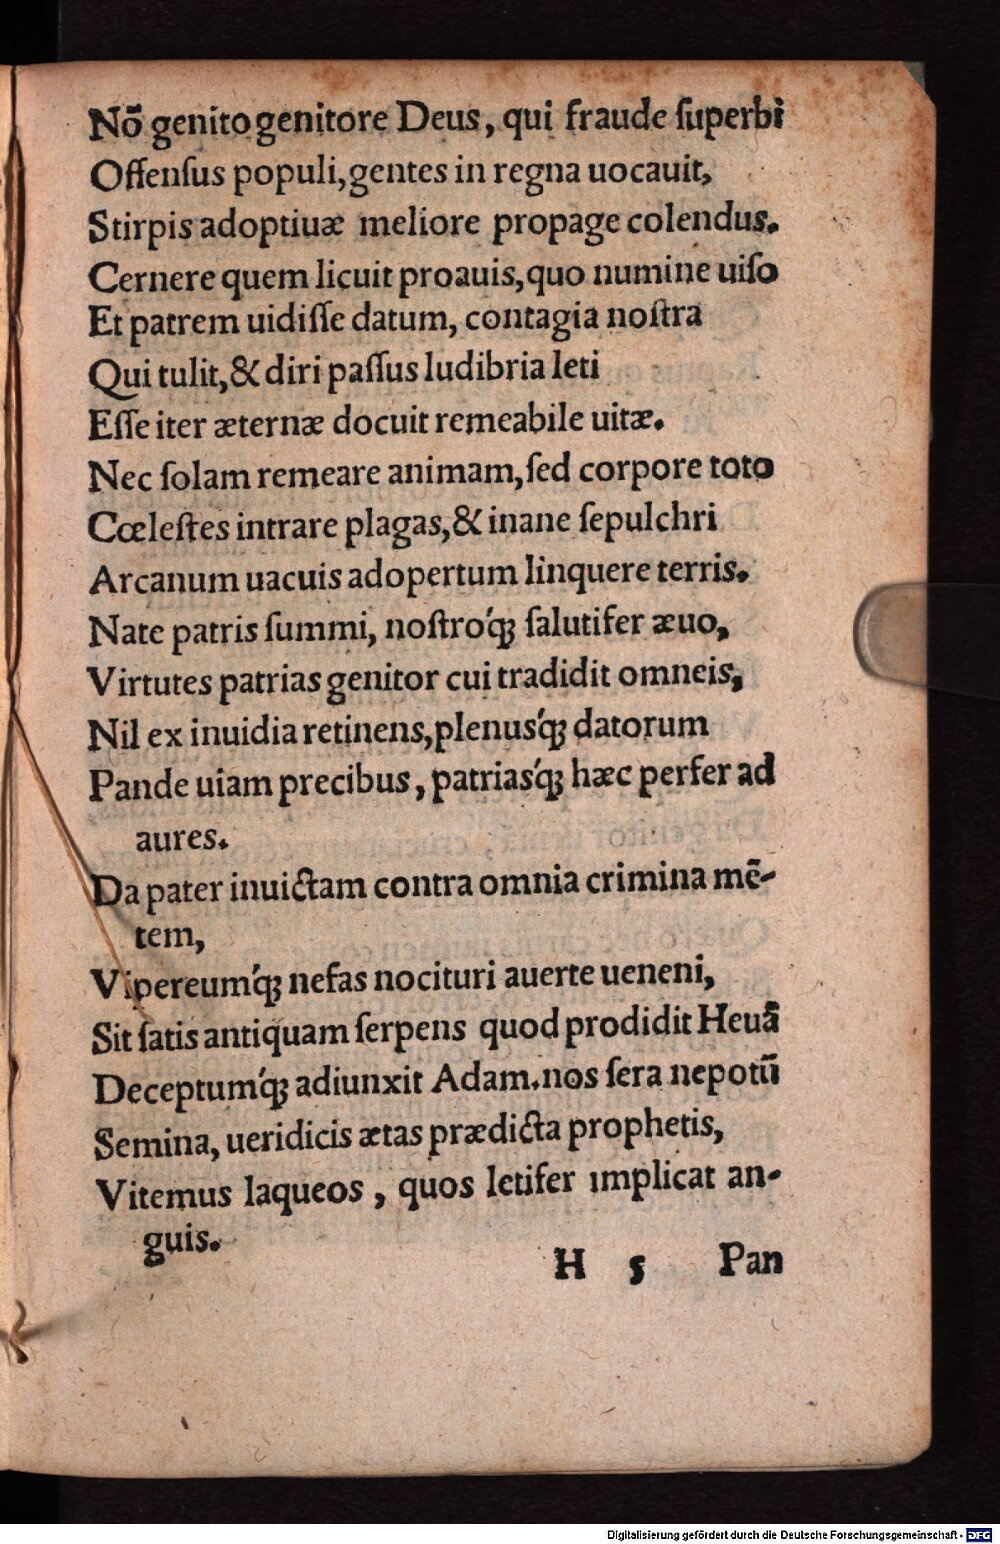 Nõ genito genitore Deus, qui fraude ſuperbi
Offenſus populi, gentes in regna uocauit,
Stirpis adoptiuæ meliore propage colendus.
Cernere quem licuit proauis, quo numine uiſo
Et patrem uidiſſe datum, contagia noſtra
Qui tulit, & diri paſſus ludibria leti
Eſſe iter æternæ docuit remeabile uitæ.
Nec ſolam remeare animam, ſed corpore toto
Cœleſtes intrare plagas, & inane ſepulchri
Arcanum uacuis adopertum linquere terris.
Nate patris ſummi, noſtro´q; ſalutifer æuo,
Virtutes patrias genitor cui tradidit omneis,
Nil ex inuidia retinens, plenus´q; datorum
Pande uiam precibus, patrias´q; hæc perfer ad
aures.
Da pater inuictam contra omnia crimina mē-
tem,
Vipereum´q; nefas nocituri auerte ueneni,
Sit ſatis antiquam ſerpens quod prodidit Heuã
Deceptum´q; adiunxit Adam. nos ſera nepotũ
Semina, ueridicis ætas prædicta prophetis,
Vitemus laqueos, quos letifer implicat an-
guis.
H 5 Pan
Digitalisierung gefördert durch die Deutsche Forschungsgemeinschaft - DFG